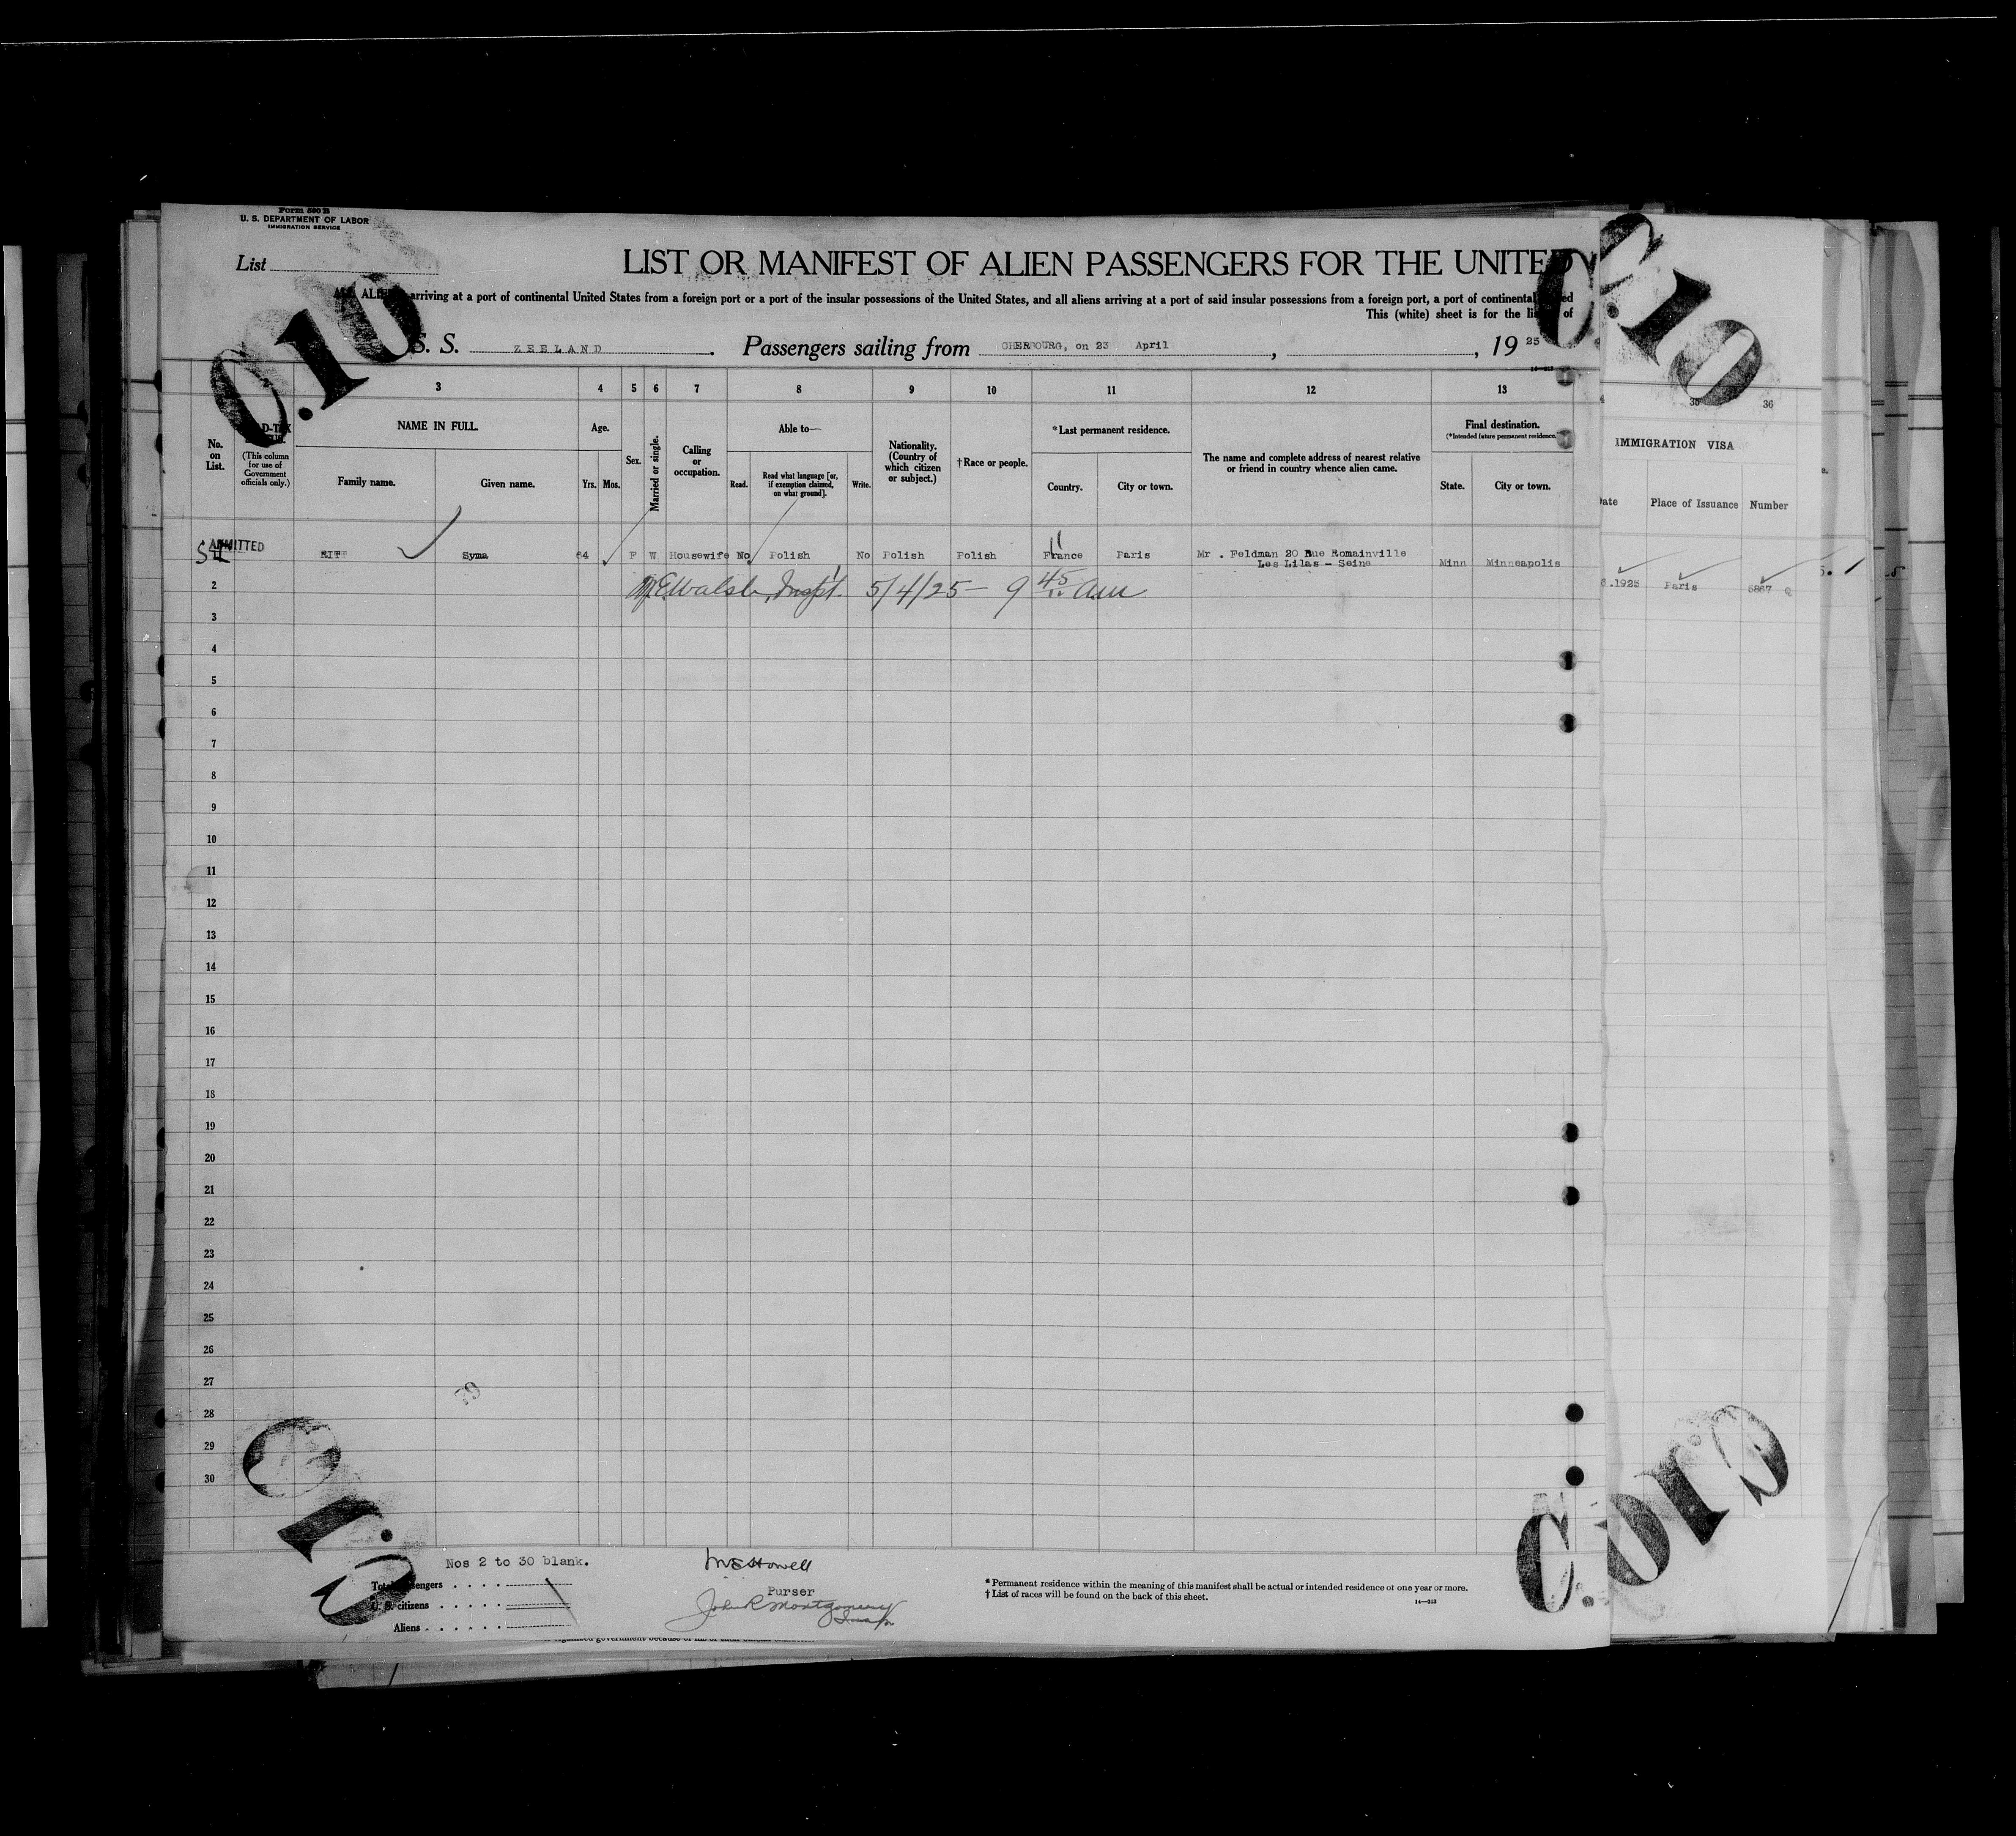 Form 500 B
U. S. DEPARTMENT OF LABOR
IMMIGRATION SERVICE
List
LIST OR MANIFEST OF ALIEN PASSENGERS FOR THE UNITED
ALL ALIENS arriving at a port of continental United States from a foreign port or a port of the insular possessions of the United States, and all aliens arriving at a port of said insular possessions from a foreign port, a port of continental
This (white) sheet is for the of
C.10
C.10
C.10
S. S. ZEELAND. Passengers sailing from CHERBOURG, on 23 April, , 19 25
14-213
3 4 5 6 7 8 9 10 11 12 13 35 36
No. on List.
(This column for use of Government officials only.)
NAME IN FULL.
Family name. Given name.
Age.
Yrs. Mos.
Sex.
Married or single.
Calling or occupation.
Able to—
Read. Read what language [or, if exemption claimed, on what ground]. Write.
Nationality. (Country of which citizen or subject.)
†Race or people.
*Last permanent residence.
Country. City or town.
The name and complete address of nearest relative or friend in country whence alien came.
Final destination.
(*Intended future permanent residence.)
State. City or town.
IMMIGRATION VISA
Place of Issuance Number
ADMITTED Syma 64 F W Housewife No Polish No Polish Polish France Paris Mr . Feldman 20 Rue Romainville Minn Minneapolis
Les Lilas - Seine
.1925 Paris 5867
2 Walsh, Inspt. 5/4/25 - 9 45 am
3
4
5
6
7
8
9
10
11
12
13
14
15
16
17
18
19
20
21
22
23
24
25
26
27
79
28
29
30
C.10
C.10
C.10
Nos 2 to 30 blank.
Total passengers
U. S. citizens
Aliens
Howell
Purser
John R Montgomery
* Permanent residence within the meaning of this manifest shall be actual or intended residence of one year or more.
† List of races will be found on the back of this sheet.
14-213